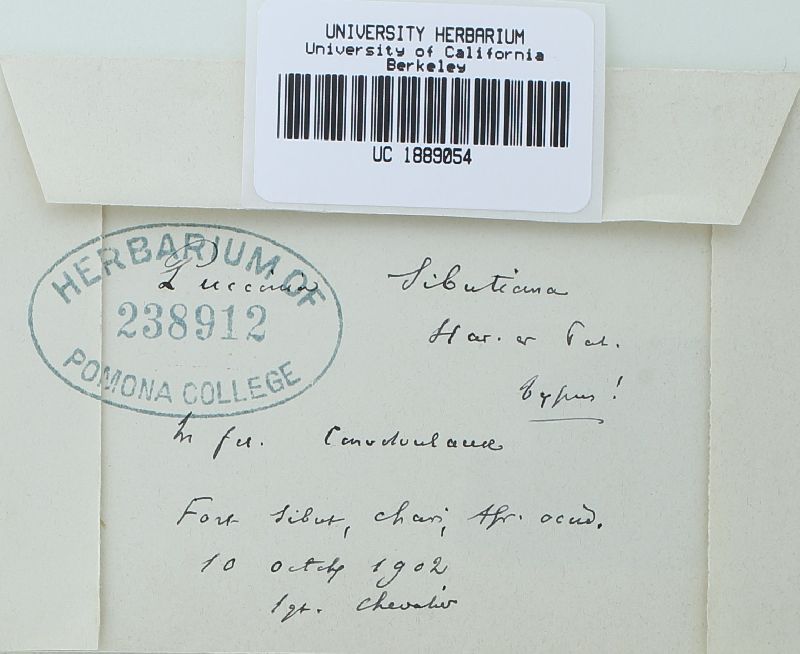 UNIVERSITY HERBARIUM
University of California
Berkeley
UC 1889054
HERBARIUM OF
238912
POMONA COLLEGE
Puccinia Sibutiana
Har. et Pat.
typus!
In fol. Convolvulaceae
Fort Sibut, Chari, Afr. occid.
10 octb 1902
lgt. Chevalier